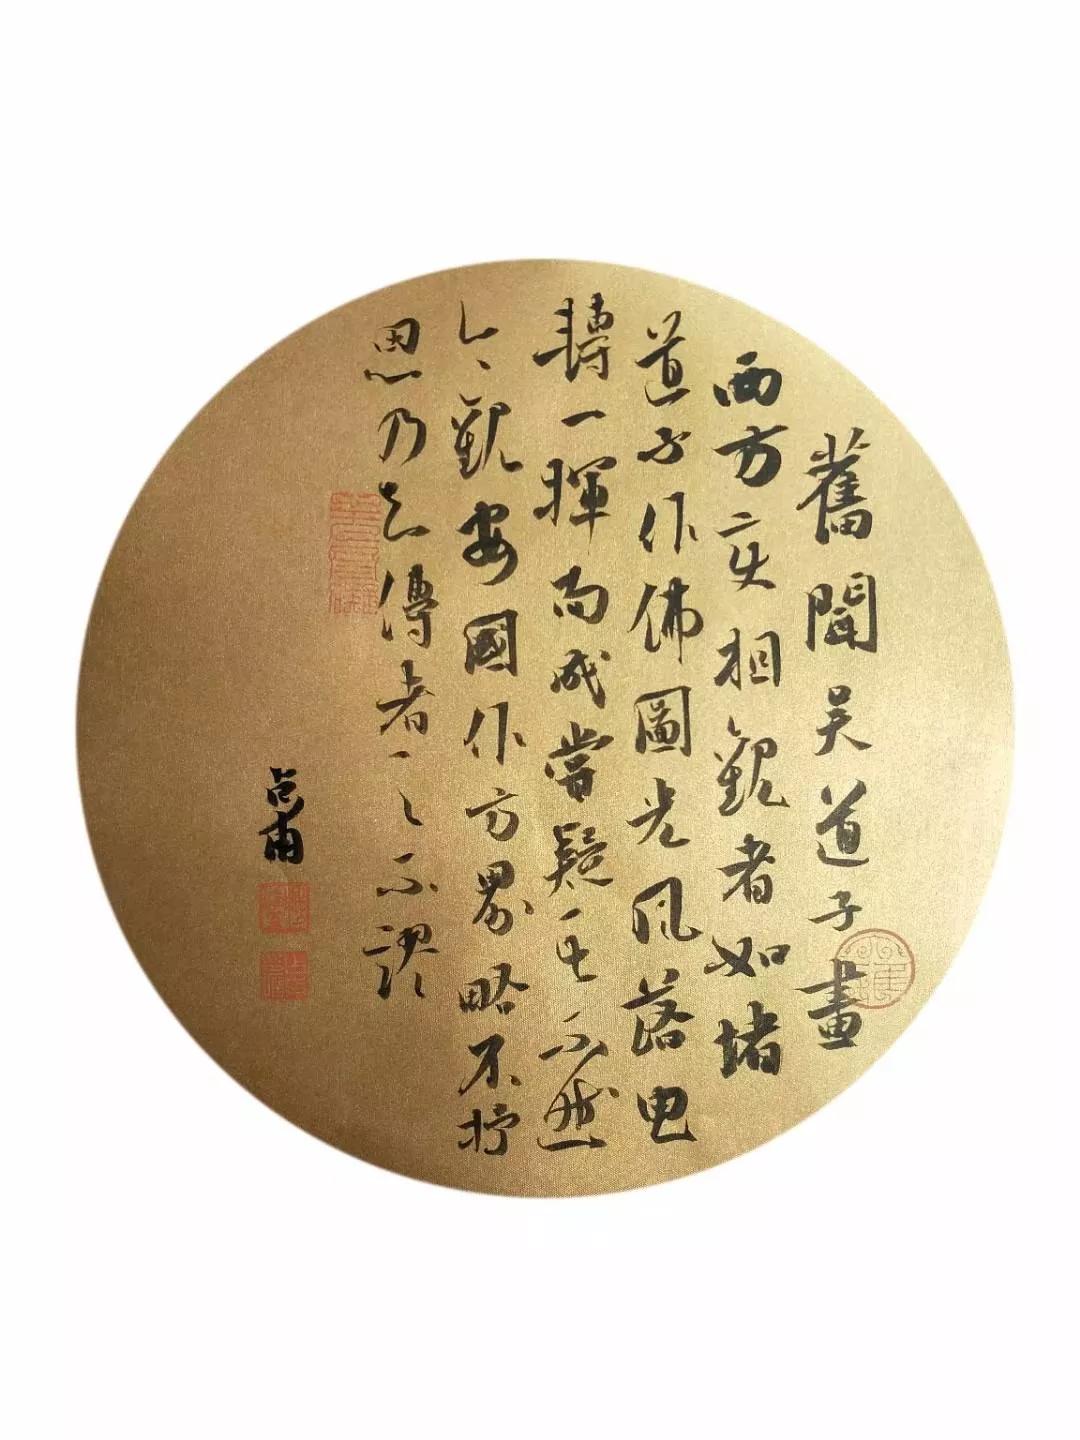 舊聞吳道子畫
西方變相觀者如堵
道子作佛圖光風落電
轉一揮而成嘗疑其不然
今觀安國作方界略不抒
思乃知傳者之不謬